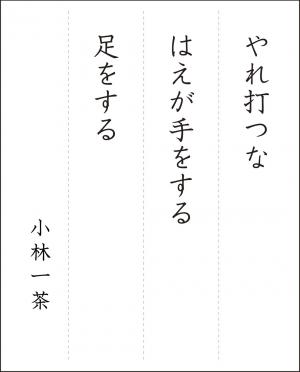 やれ打つな
はえが手をする
足をする
小林一茶